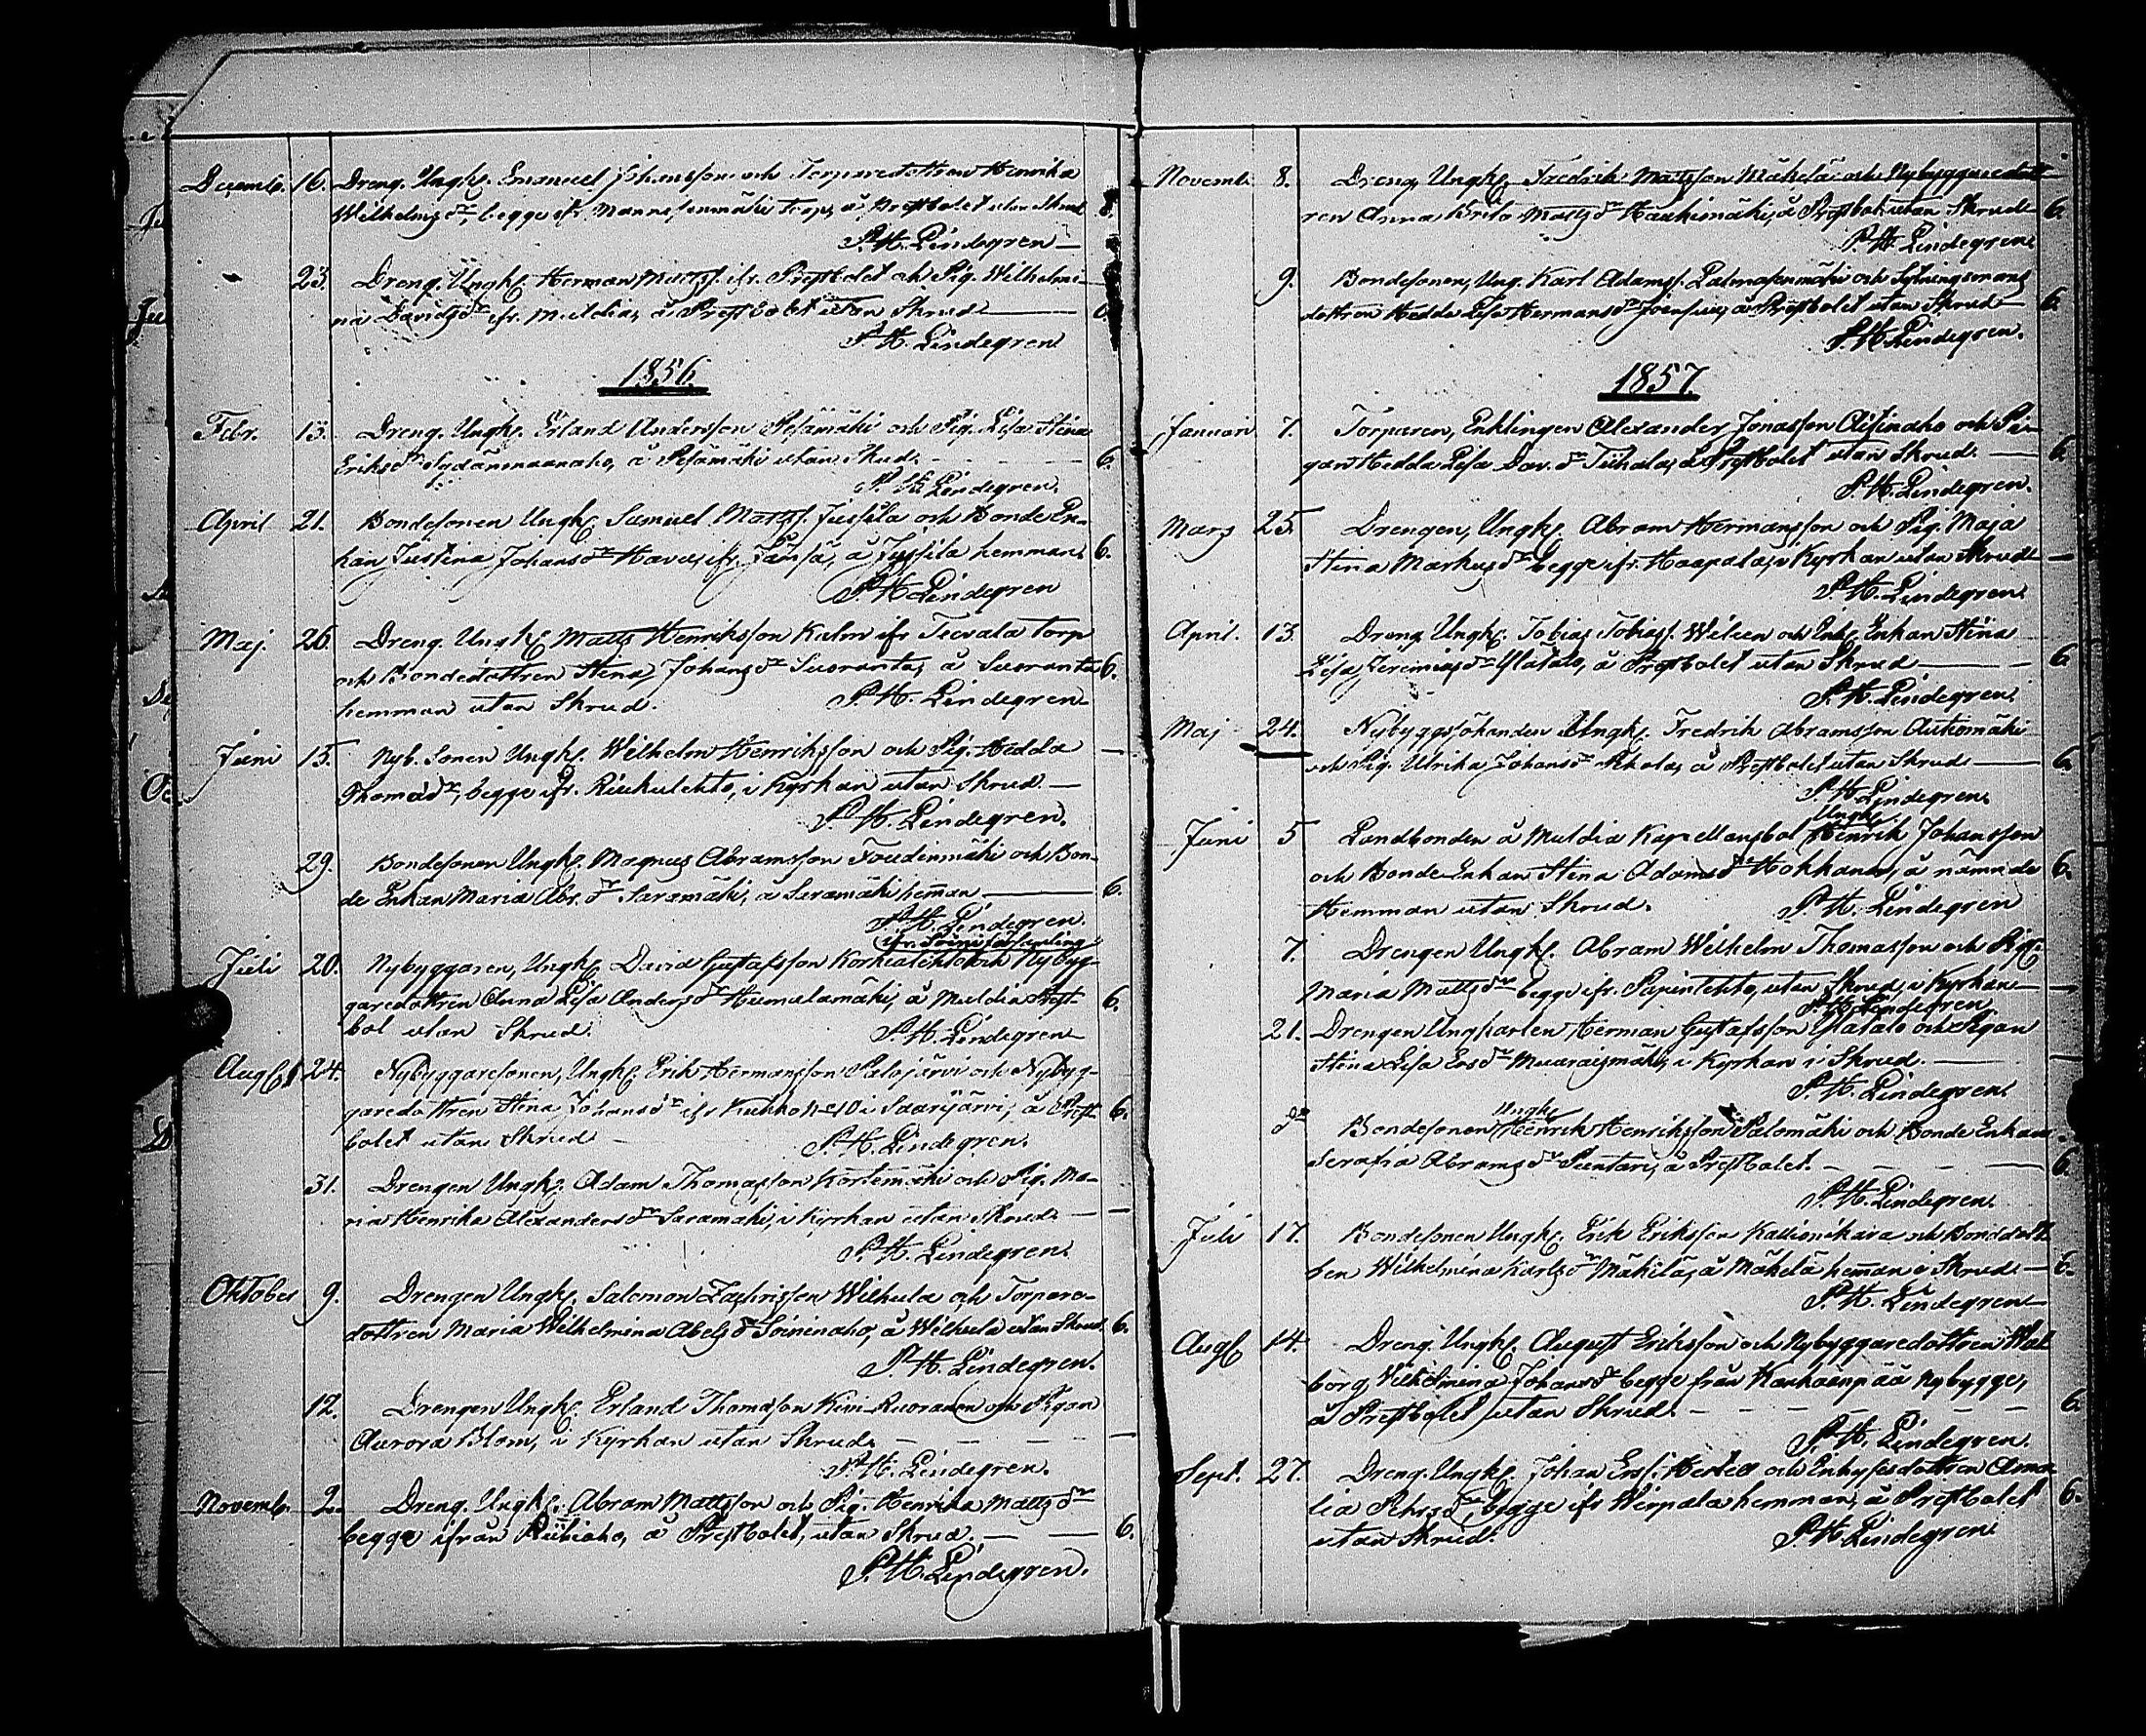 Decemb. 16. Dreng. Ungk. Emanuel Johansson och Torparedottren Henrika
Wilhelms dr, begge ifr. Mannisenmäki torp, å Prestbolet utan Skrud 6.
P. H. Lindegren
23. Dreng. Ungk. Herman Mattss. ifr. Prestbolet och Pig. Wilhelmi-
na Davids dr ifr. Muldia, å Prestbolet utan Skrud 6.
P. H. Lindegren
1856.
Febr. 13. Dreng. Ungk. Erland Andersson Pesämäki och Pig. Lisa Stina
Eriks dr Sydänmaanaho, å Pesämäki utan Skrud. 6.
P. H. Lindegren.
April 21. Bondesonen Ungk. Samuel Matts. Jussila och Bonde En-
kan Justina Johans dr Havu, ifr. Jämsä, å Jussila hemman. 6.
P. H. Lindegren
Maj. 26. Dreng. Ungk. Matts Henriksson Kalm ifr Teerala torp
och Bondedottren Stina Johans dr Suoranta, å Suoranta 6.
hemman utan Skrud. P. H. Lindegren
Juni 15. Nyb. Sonen Ungk. Wilhelm Henriksson och Pig. Hedda —
Thomæ dr, begge ifr. Riukulehto, i Kyrkan utan Skrud. —
P. H. Lindegren.
29. Bondesonen Ungk. Magnus Abramsson Toudinmäki och Bon-
de Enkan Maria Abr. dr Saramäki, å Saramäki heman 6.
P. H. Lindegren.
ifr. Soini församling
Juli 20. Nybyggaren, Ungk. David Gustafsson Korkialehto och Nybyg-
garedottren Anna Lisa Anders dr Humalamäki, å Muldia Prest- 6.
bol utan Skrud. P. H. Lindegren
Aug. 24. Nybyggaresonen, Ungk. Erik Hermansson Palojärvi och Nybyg-
garedottren Stina Johans dr ifr Kukko i Saarijärvi, å Prest- 6.
bolet utan Skrud P. H. Lindegren.
31. Drengen Ungk. Adam Thomasson Kortemäki och Pig. Ma-
ria Henrika Alexanders dr Saramäki, i Kyrkan utan Skrud. —
P. H. Lindegren.
Oktober 9. Drengen Ungk. Salomon Zachrisson Wilhula och Torpare-
dottren Maria Wilhelmina Abels dr Soininaho, å Wilhula utan Skrud. 6.
P. H. Lindegren.
12. Drengen Ungk. Erland Thomasson Kivi-Ruoranen och Pigan
Aurora Blom, i Kyrkan utan Skrud. —
P. H. Lindegren.
Novemb. 2. Dreng. Ungk. Abram Mattsson och Pig. Henrika Matts dr
begge ifrån Riihiaho, å Prestbolet, utan Skrud. — 6.
P. H. Lindegren.
Novemb. 8. Dreng Ungk. Fredrik Mattsson Mäkelä och Nybyggaredott-
ren Anna Brita Matts dr Haukimäki, å Prestbol. utan Skrud 6.
P. H. Lindegren.
9. Bondesonen, Ung. Karl Adamss. Palomasenmäki och Sytningsmans
dottren Hedda Lisa Hermans dr Joensuu, å Prestbolet utan Skrud 6.
P. H. Lindegren.
1857.
Januari 7. Torparen, Enklingen Alexander Jonasson Aijinaho och Pi-
gan Hedda Lisa Dav. dr Tiihala, å Prestbolet utan Skrud. 6.
P. H. Lindegren.
Mars 25. Drengen, Ungk. Abram Hermansson och Pig. Maja
Stina Markus dr begge ifr. Haapala, i Kyrkan utan Skrud —
P. H. Lindegren.
April. 13. Dreng Ungk. Tobias Tobiass. Wileen och Enk. Enkan Stina
Lisa Jeremias dr Ylätalo, å Prestbolet utan Skrud 6
P. H. Lindegren.
Maj 24. Nybyggsåhanden Ungk. Fredrik Abramsson Autiomäki
och Pig. Ulrika Johans dr Pihola, å Prestbolet utan Skrud 6.
P. H. Lindegren.
Ungk.
Juni 5 Landbonden å Muldia Kapellansbol Henrik Johansson
och Bonde Enkan Stina Adams dr Hokkanen, å nämnde 6.
Hemman utan Skrud. P. H. Lindegren
7. Drengen Ungk. Abram Wilhelm Thomasson och Pig.
Maria Matts dr begge ifr. Papinlehto, utan Skrud, i Kyrkan —
P. H. Lindegren.
21. Drengen Ungkarlen Herman Gustafsson Ylätalo och Pigan
Stina Lisa Ers dr Muuraismäki, i Kyrkan i Skrud. —
P. H. Lindegren.
Ungk.
do Bondesonen Henrik Henriksson Palomäki och Bonde Enkan
Serafia Abrams dr Puntari, å Prestbolet. 6.
P. H. Lindegren.
Juli 17. Bondesonen Ungk. Erik Eriksson Kallionikara och Bondedott
ren Wilhelmina Karls dr Mäkilä, å Mäkelä heman i Skrud. 6.
P. H. Lindegren
Aug. 14. Dreng. Ungk. August Eriksson och Nybyggaredottren Wal
borg Wilhelmina Johans dr begge från Kanhaanpää Nybygge,
å Prestbolet utan Skrud. 6.
P. H. Lindegren.
Sept. 27. Dreng. Ungk. Johan Erss. Hertell och Inhysesdottren Ama
lia Pehrs dr begge ifr Wirpala hemman, å Prestbolet 6.
utan Skrud. P. H. Lindegren